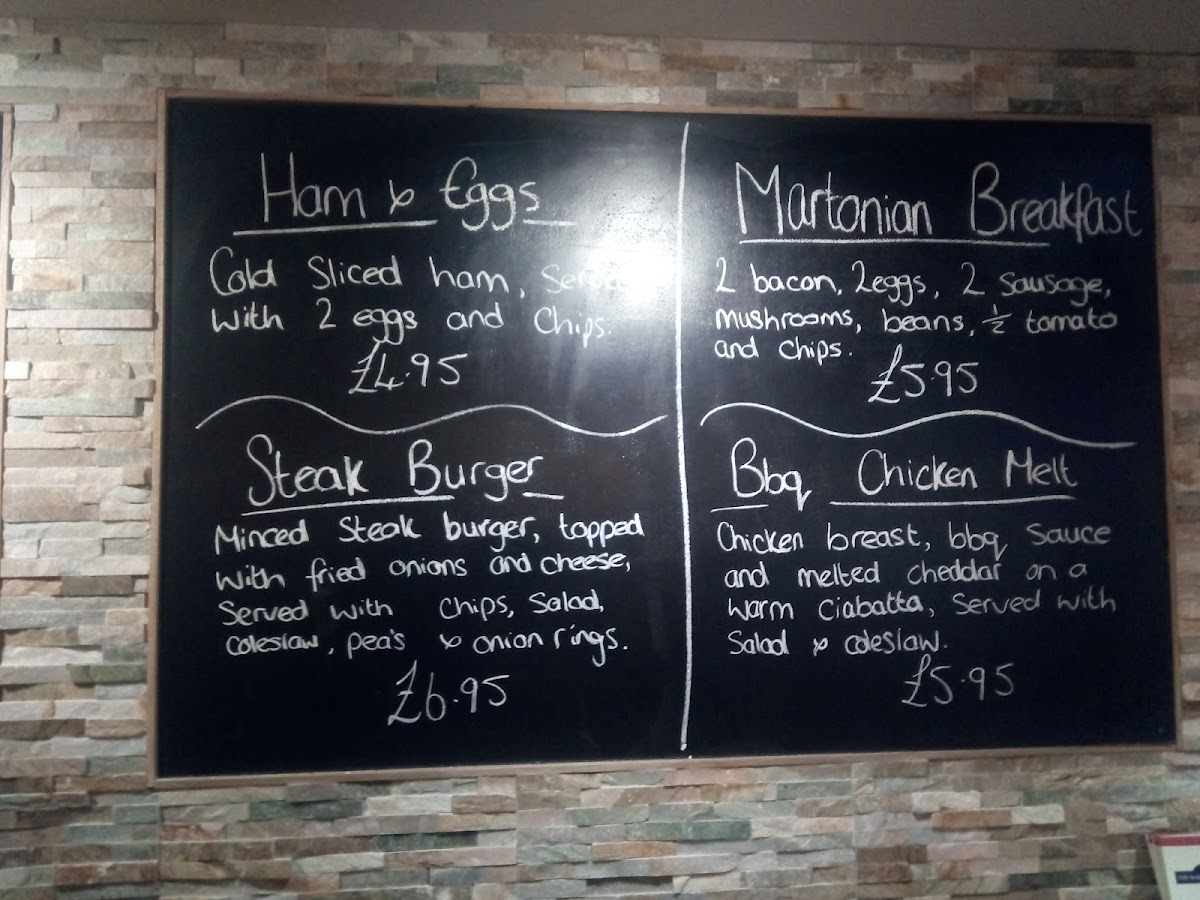 Ham & Eggs
Cold Sliced ham, served
with 2 eggs and chips.
£4.95
Martonian Breakfast
2 bacon, 2eggs, 2 sausage,
mushrooms, beans, ½ tomato
and chips.
£5.95
Steak Burger
Minced Steak burger, topped
with fried onions and cheese,
Served with chips, Salad,
coleslaw, pea's & onion rings.
£6.95
Bbq Chicken Melt
Chicken breast, bbq Sauce
and melted cheddar on a
warm ciabatta, Served with
Salad & coleslaw.
£5.95